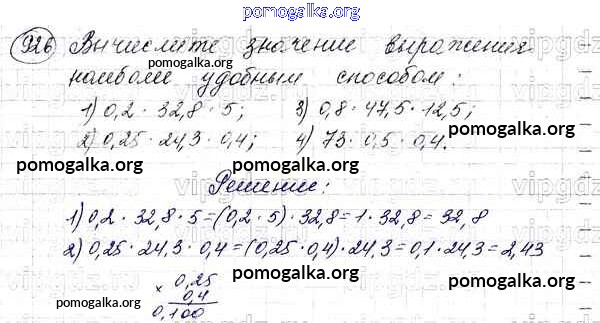 pomogalka.org
926 Вычислите значение выражения
наиболее удобным способом:
pomogalka.org pomogalka.org
1) 0,2 · 32,8 · 5; 3) 0,8 · 47,5 · 12,5;
2) 0,25 · 24,3 · 0,4; 4) 73 · 0,5 · 0,4.
pomogalka.org pomogalka.org
Решение:
1) 0,2 · 32,8 · 5 = (0,2 · 5) · 32,8 = 1 · 32,8 = 32,8
pomogalka.org pomogalka.org
2) 0,25 · 24,3 · 0,4 = (0,25 · 0,4) · 24,3 = 0,1 · 24,3 = 2,43
pomogalka.org
× 0,25
pomogalka.org pomogalka.org
0,4
0,100
pomogalka.org